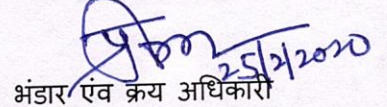 25/2/2020
भंडार एंव क्रय अधिकारी